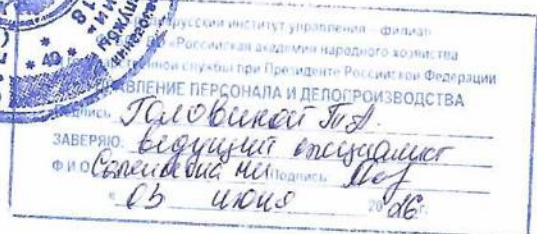 институт управления – филиал
«Российская академия народного хозяйства
государственной службы при Президенте Российской Федерации
УПРАВЛЕНИЕ ПЕРСОНАЛА И ДЕЛОПРОИЗВОДСТВА
подпись Головиной Т.А.
ЗАВЕРЯЮ: ведущий специалист
Ф И О подпись
« 03 июня 20 26 г.
* 40 *